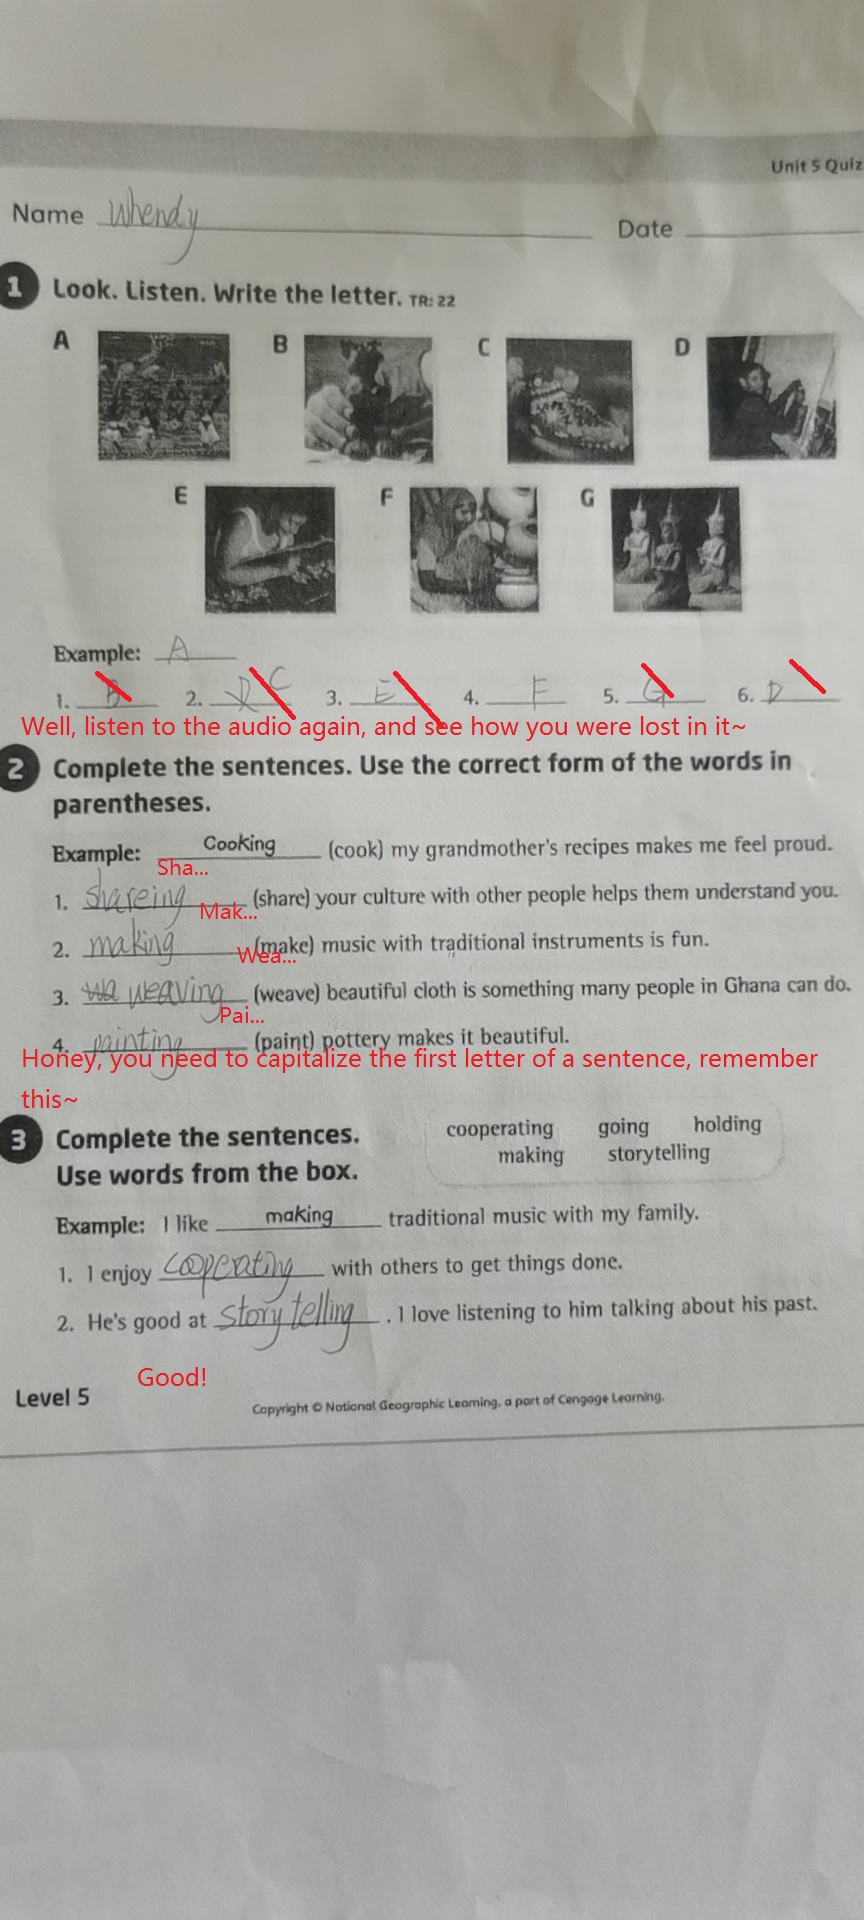 Unit 5 Quiz
Name Whendy Date
1 Look. Listen. Write the letter. TR: 22
A B C D
E F G
Example: A
1. B 2. D C 3. E 4. F 5. G 6. D
Well, listen to the audio again, and see how you were lost in it~
2 Complete the sentences. Use the correct form of the words in
parentheses.
Example: Cooking (cook) my grandmother's recipes makes me feel proud.
Sha...
1. shareing (share) your culture with other people helps them understand you.
Mak...
2. making (make) music with traditional instruments is fun.
Wea...
3. wa weaving (weave) beautiful cloth is something many people in Ghana can do.
Pai...
4. painting (paint) pottery makes it beautiful.
Honey, you need to capitalize the first letter of a sentence, remember
this~
3 Complete the sentences.
Use words from the box.
cooperating going holding
making storytelling
Example: I like making traditional music with my family.
1. I enjoy cooperating with others to get things done.
2. He's good at storytelling. I love listening to him talking about his past.
Good!
Level 5
Copyright © National Geographic Learning, a part of Cengage Learning.